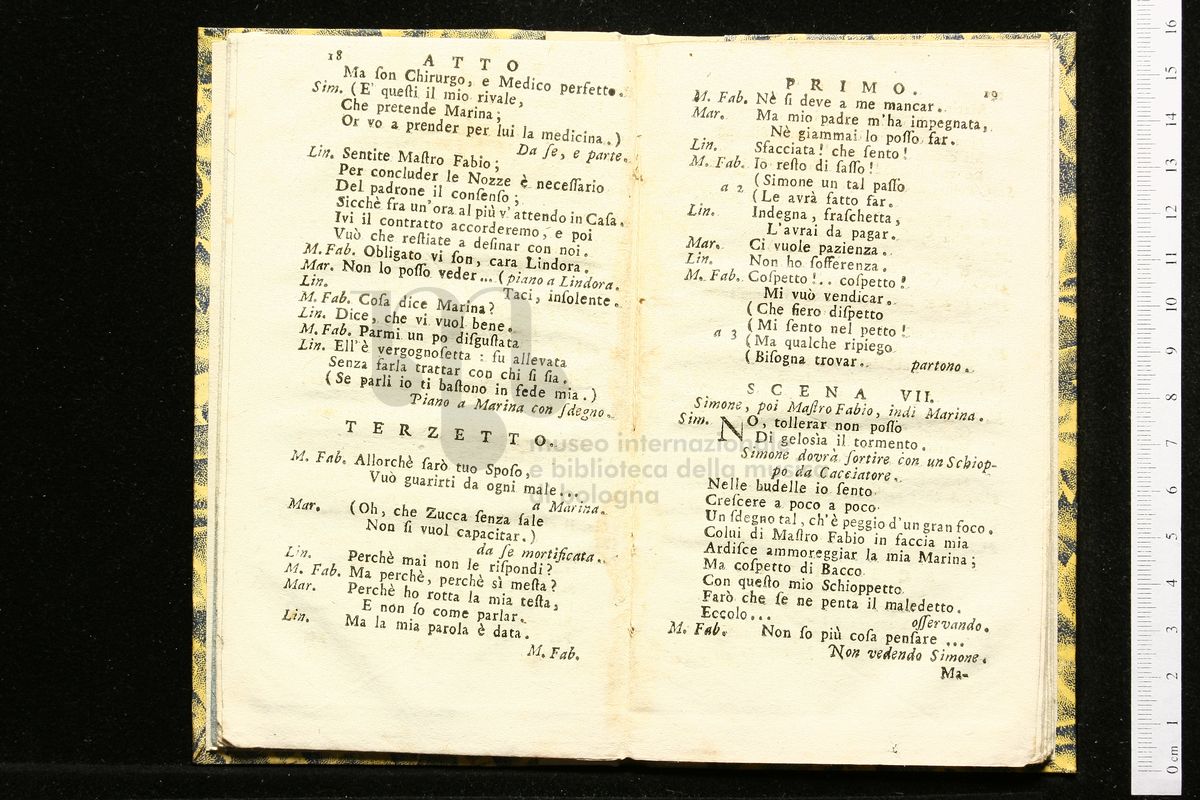 18 ATTO
Ma ſon Chirurgo, e Medico perfetto.
Sim. (E' queſti il mio rivale,
Che pretende Marina;
Or vo a prender per lui la medicina.)
Da ſe, e parte.
Lin. Sentite Maſtro Fabio;
Per concluder le Nozze è neceſſario
Del padrone il conſenſo;
Sicchè fra un'ora al più v'attendo in Caſa.
Ivi il contratto accorderemo, e poi
Vuò che reſtiate a deſinar con noi.
M. Fab. Obligato vi ſon, cara Lindora.
Mar. Non lo poſſo veder... (piano a Lindora.
Lin. Taci, inſolente.
M. Fab. Coſa dice Marina?
Lin. Dice, che vi vuol bene.
M. Fab. Parmi un po diſguſtata
Lin. Ell'è vergognoſetta : fu allevata
Senza farla trattar con chi ſi ſia.
(Se parli io ti baſtono in fede mia.)
Piano a Marina con ſdegno.
TERZETTO.
M. Fab. Allorchè ſarò tuo Spoſo,
Vuò guarirti da ogni male...
a Marina.
Mar. (Oh, che Zucca ſenza ſale
Non ſi vuol capacitar.)
da ſe mortificata.
Lin. Perchè mai non le riſpondi?
M. Fab. Ma perchè, perchè sì meſta?
Mar. Perchè ho rotta la mia teſta,
E non ſo come parlar.
Lin. Ma la mia parola è data.
M. Fab.
PRIMO. 19
M. Fab. Nè ſi deve a me mancar.
Mar. Ma mio padre m'ha impegnata,
Nè giammai lo poſſo far.
Lin. Sfacciata! che ſento!
M. Fab. Io reſto di ſaſſo!
a 2 (Simone un tal paſſo
(Le avrà fatto far.
Lin. Indegna, fraſchetta,
L'avrai da pagar.
Mar. Ci vuole pazienza.
Lin. Non ho ſofferenza.
M. Fab. Coſpetto!.. coſpetto!
Mi vuò vendicar.
(Che fiero diſpetto
a 3 (Mi ſento nel petto!
(Ma qualche ripiego
(Biſogna trovar. partono.
SCENA VII.
Simone, poi Maſtro Fabio, indi Marina.
Sim. NO, tollerar non poſſo
Di gelosìa il tormento.
Simone dovrà ſortire con un Schiop-
po da Cacciatore.
Nelle budelle io ſento
Creſcere a poco a poco
Un ſdegno tal, ch'è peggio d'un gran foco.
Colui di Maſtro Fabio in faccia mia
Ardiſce ammoreggiar la mia Marina;
Ma coſpetto di Bacco
Con queſto mio Schioppetto
Farò che ſe ne penta il maledetto.
Eccolo... oſſervando.
M. Fab. Non ſo più coſa penſare ...
Non vedendo Simone.
Ma-
museo internazionale
e biblioteca della musica
di bologna
0 cm 1 2 3 4 5 6 7 8 9 10 11 12 13 14 15 16